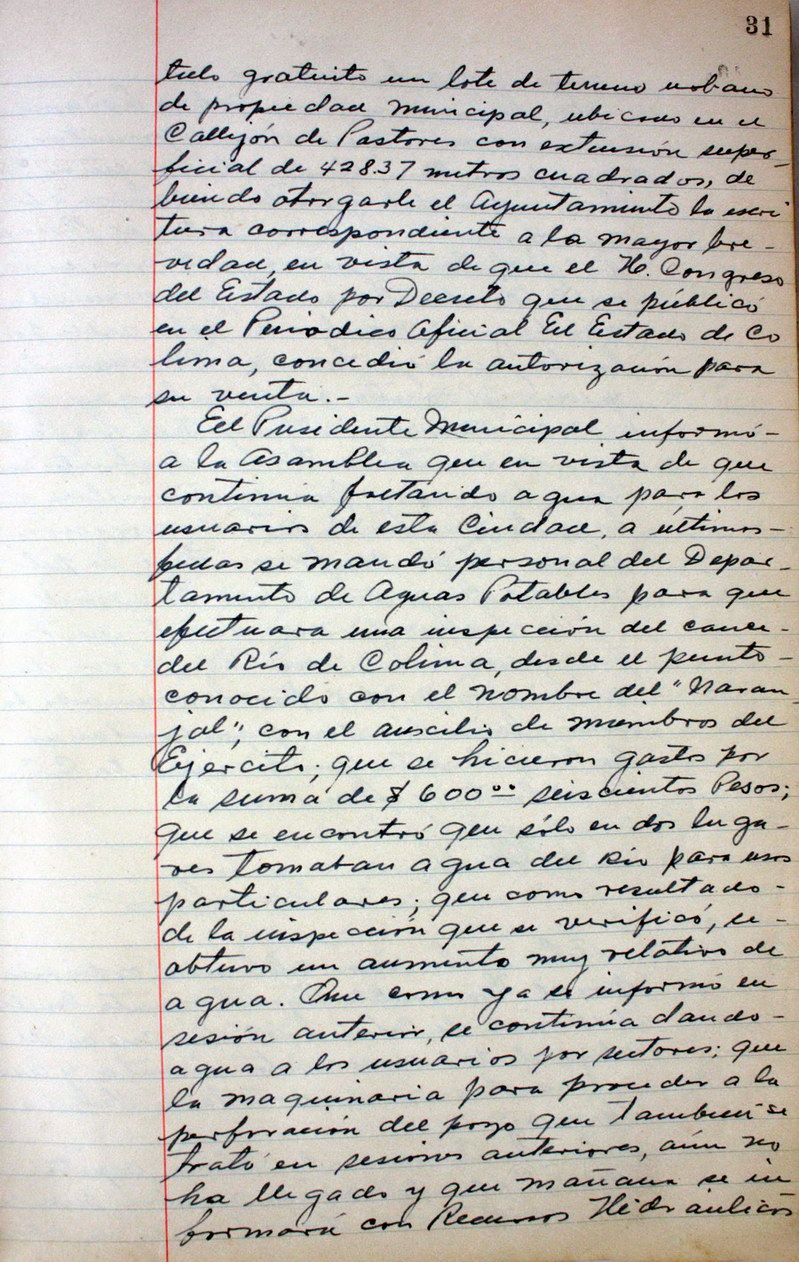 31
tulo gratuito un lote de terreno urbano
de propiedad municipal, ubicado en el
Callejón de Pastores con extensión super-
ficial de 428.37 metros cuadrados, de
biendo otorgarle el Ayuntamiento la escri
tura correspondiente a la mayor bre-
vedad, en vista de que el H. Congreso
del Estado por Decreto que se públicó
en el Periodico Oficial El Estado de Co
lima, concedió la autorización para
su venta.-
El Presidente Municipal informó-
a la Asamblea que en vista de que
continua faltando agua para los
usuarios de esta Ciudad, a últimas-
fechas se mandó personal del Depar-
tamento de Aguas Potables para que
efectuara una inspección del cauce-
del Río de Colima, desde el punto-
conocido con el nombre del "Naran
jal", con el auxilio de miembros del
Ejercito; que se hicieron gastos por
la suma de $ 600.oo seiscientos Pesos;
que se encontró que sólo en dos luga-
res tomaban agua del Río para usos
particulares; que como resultado-
de la inspección que se verificó, se-
obtuvo un aumento muy relativo de
agua. Que como ya se informó en
sesión anterior, se continúa dando-
agua a los usuarios por sectores; que
la maquinaria para proceder a la
perforación del pozo que también se
trató en sesiones anteriores, aún no
ha llegado y que mañana se in
formará con Recursos Hidráulicos